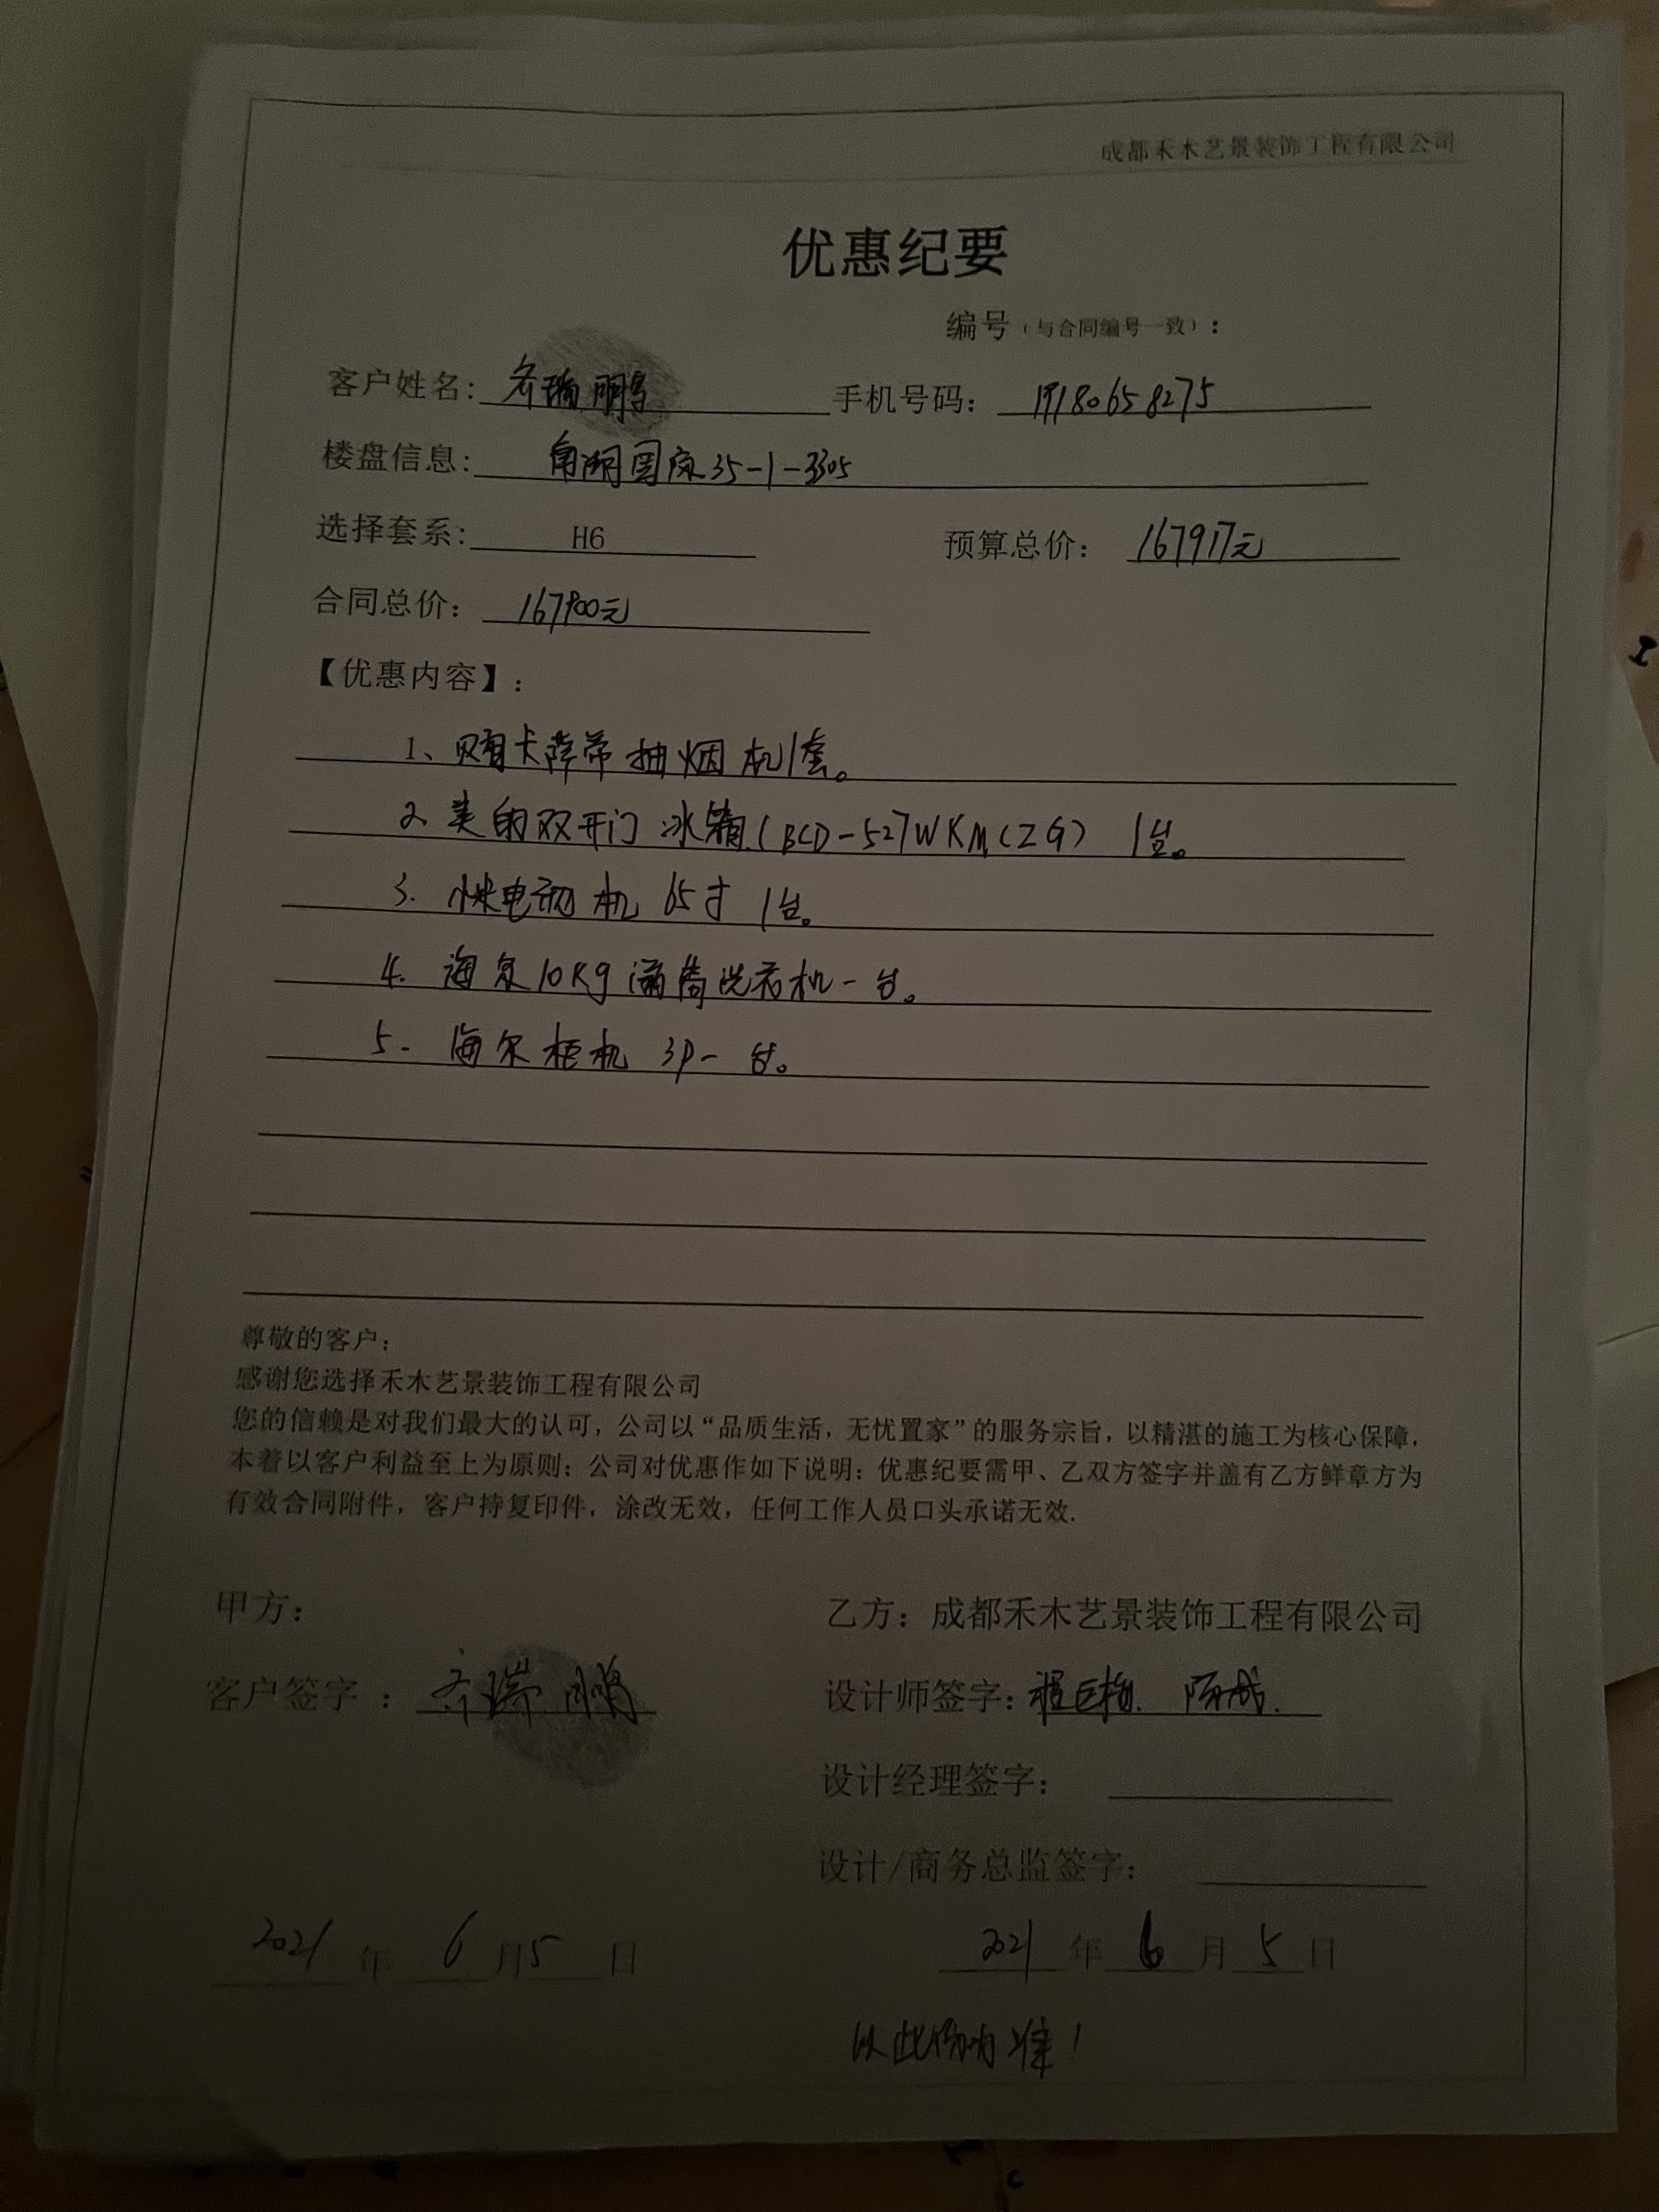 成都禾木艺景装饰工程有限公司
优惠纪要
编号(与合同编号一致):
客户姓名: 齐瑞鹏 手机号码: 19180658275
楼盘信息: 南湖国际35-1-3305
选择套系: H6 预算总价: 167917元
合同总价: 167900元
【优惠内容】:
1、赠卡萨帝抽烟机1套。
2、美的双开门冰箱(BCD-527WKM(ZG) 1台。
3. 电视机 65寸 1台。
4. 海尔10Kg滚筒洗衣机一台。
5. 海尔柜机 3P一台。
尊敬的客户:
感谢您选择禾木艺景装饰工程有限公司
您的信赖是对我们最大的认可，公司以“品质生活，无忧置家”的服务宗旨，以精湛的施工为核心保障，
本着以客户利益至上为原则；公司对优惠作如下说明：优惠纪要需甲、乙双方签字并盖有乙方鲜章方为
有效合同附件，客户持复印件，涂改无效，任何工作人员口头承诺无效.
甲方: 乙方: 成都禾木艺景装饰工程有限公司
客户签字 : 齐瑞鹏 设计师签字: 陈成.
设计经理签字:
设计/商务总监签字:
2021 年 6 月 5 日 2021 年 6 月 5 日
以此份为准!